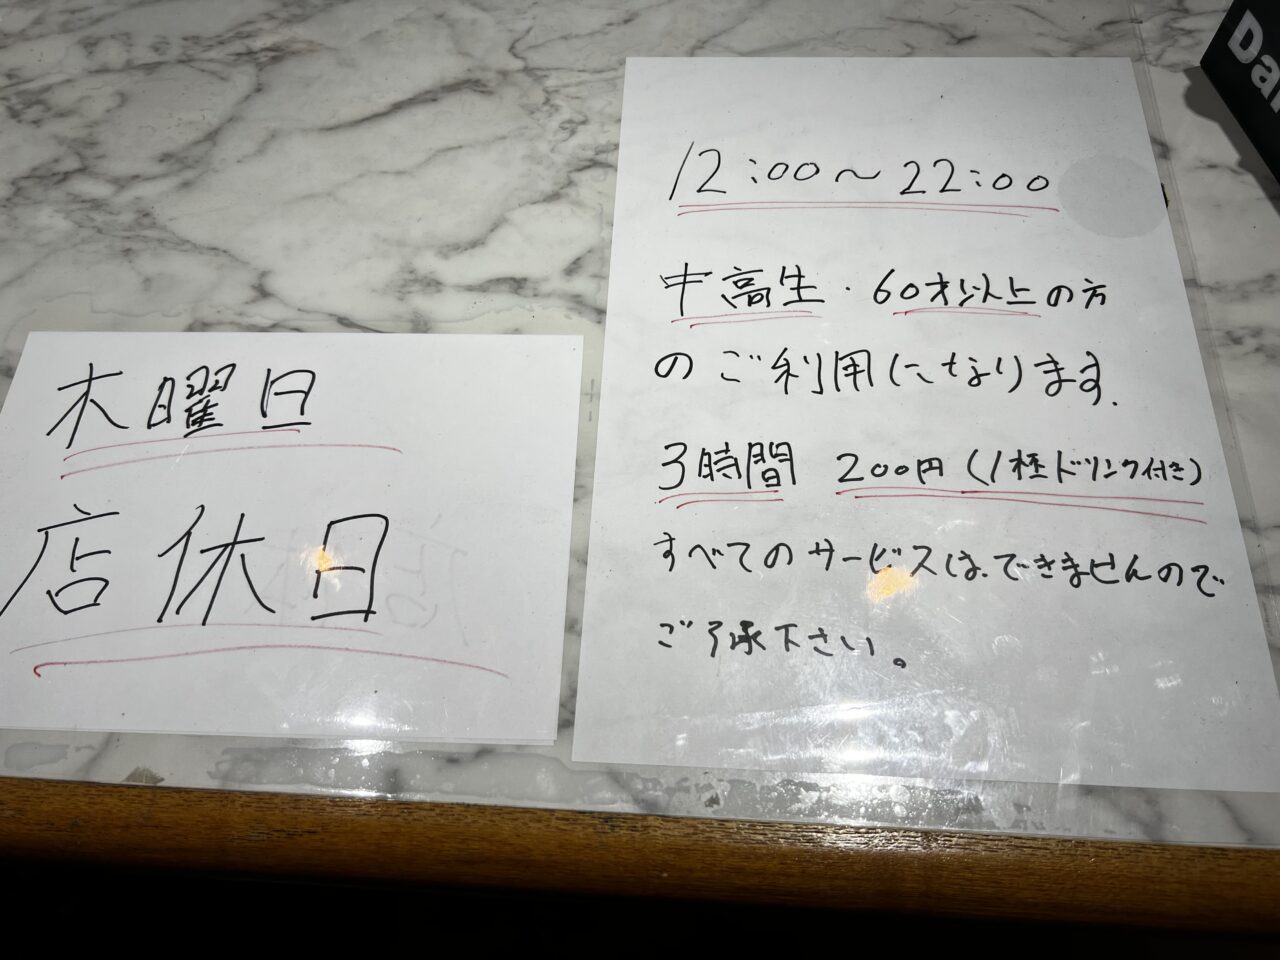 12:00～22:00
中高生・60才以上の方
のご利用になります.
3時間 200円(1杯ドリンク付き)
すべてのサービスは、できませんので
ご了承下さい。
木曜日
店休日
Da